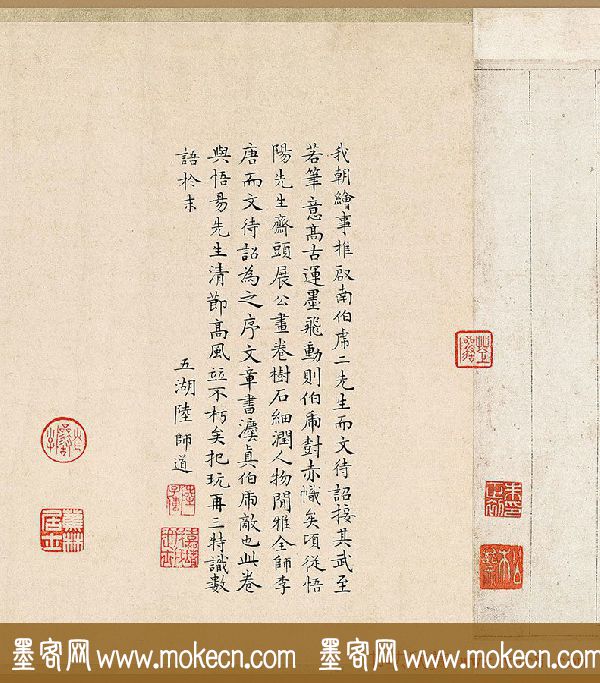 我朝繪事推啟南伯虎二先生而文待詔接其武至
若筆意高古運墨飛動則伯虎封赤幟矣頃從悟
陽先生齋頭展公畫卷樹石細潤人物閒雅全師李
唐而文待詔為之序文章書灋真伯虎敵也此卷
與悟昜先生清節高風並不朽矣把玩再三特識數
語於末
五湖陸師道
墨客网 www.mokecn.com 墨客网 www.mokecn.com